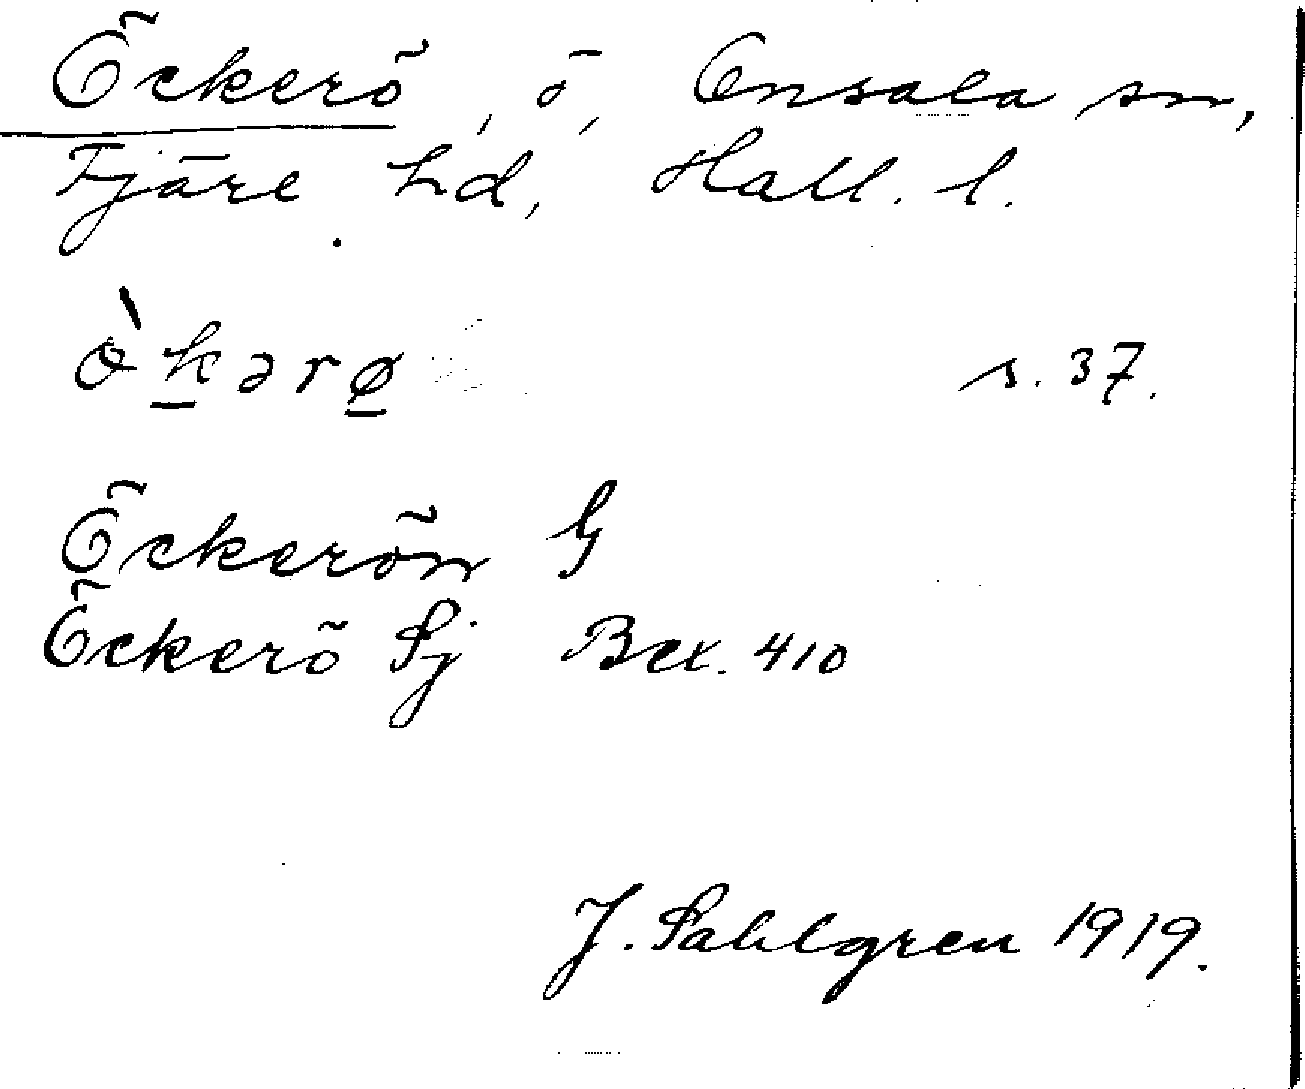 Öckerö, ö, Onsala sn,
Fjäre hd, Hall. l.
s. 37.
Öckerön G
Öckerö Sj Bex. 410
J. Sahlgren 1919.